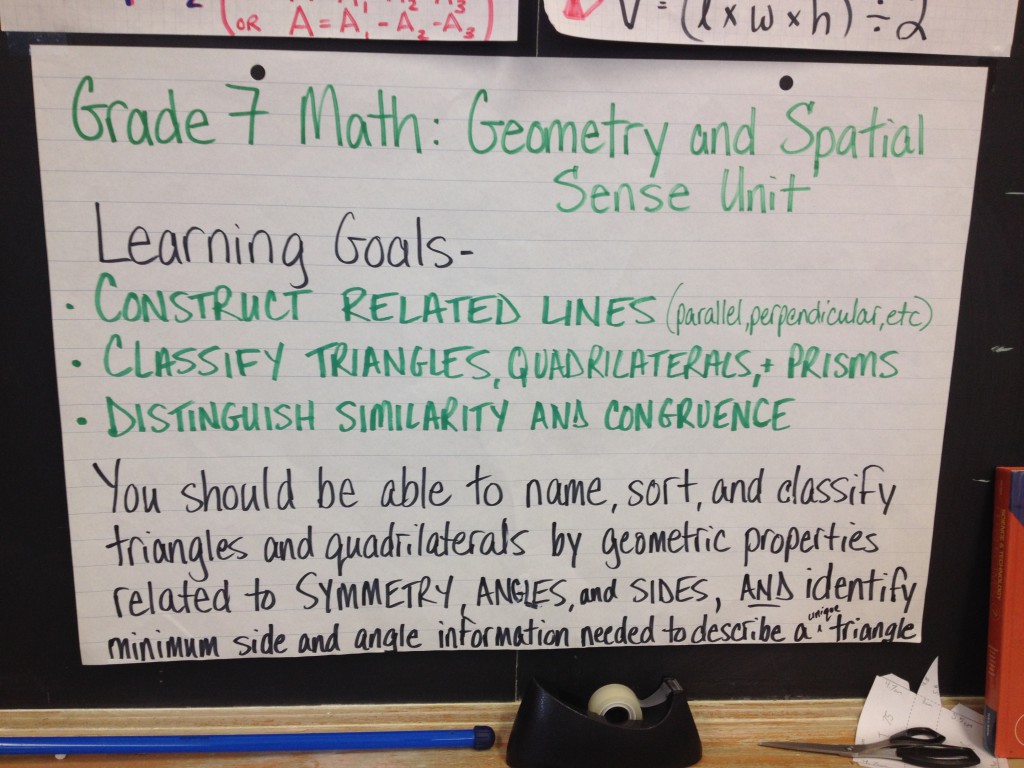 (OR A=A₁-A₂-A₃)
V=(l×w×h)÷2
Grade 7 Math: Geometry and Spatial
Sense Unit
Learning Goals-
• CONSTRUCT RELATED LINES (parallel, perpendicular, etc)
• CLASSIFY TRIANGLES, QUADRILATERALS, + PRISMS
• DISTINGUISH SIMILARITY AND CONGRUENCE
You should be able to name, sort, and classify
triangles and quadrilaterals by geometric properties
related to SYMMETRY, ANGLES, and SIDES, AND identify
minimum side and angle information needed to describe a unique triangle
SCIENCE & TECHNOLOGY